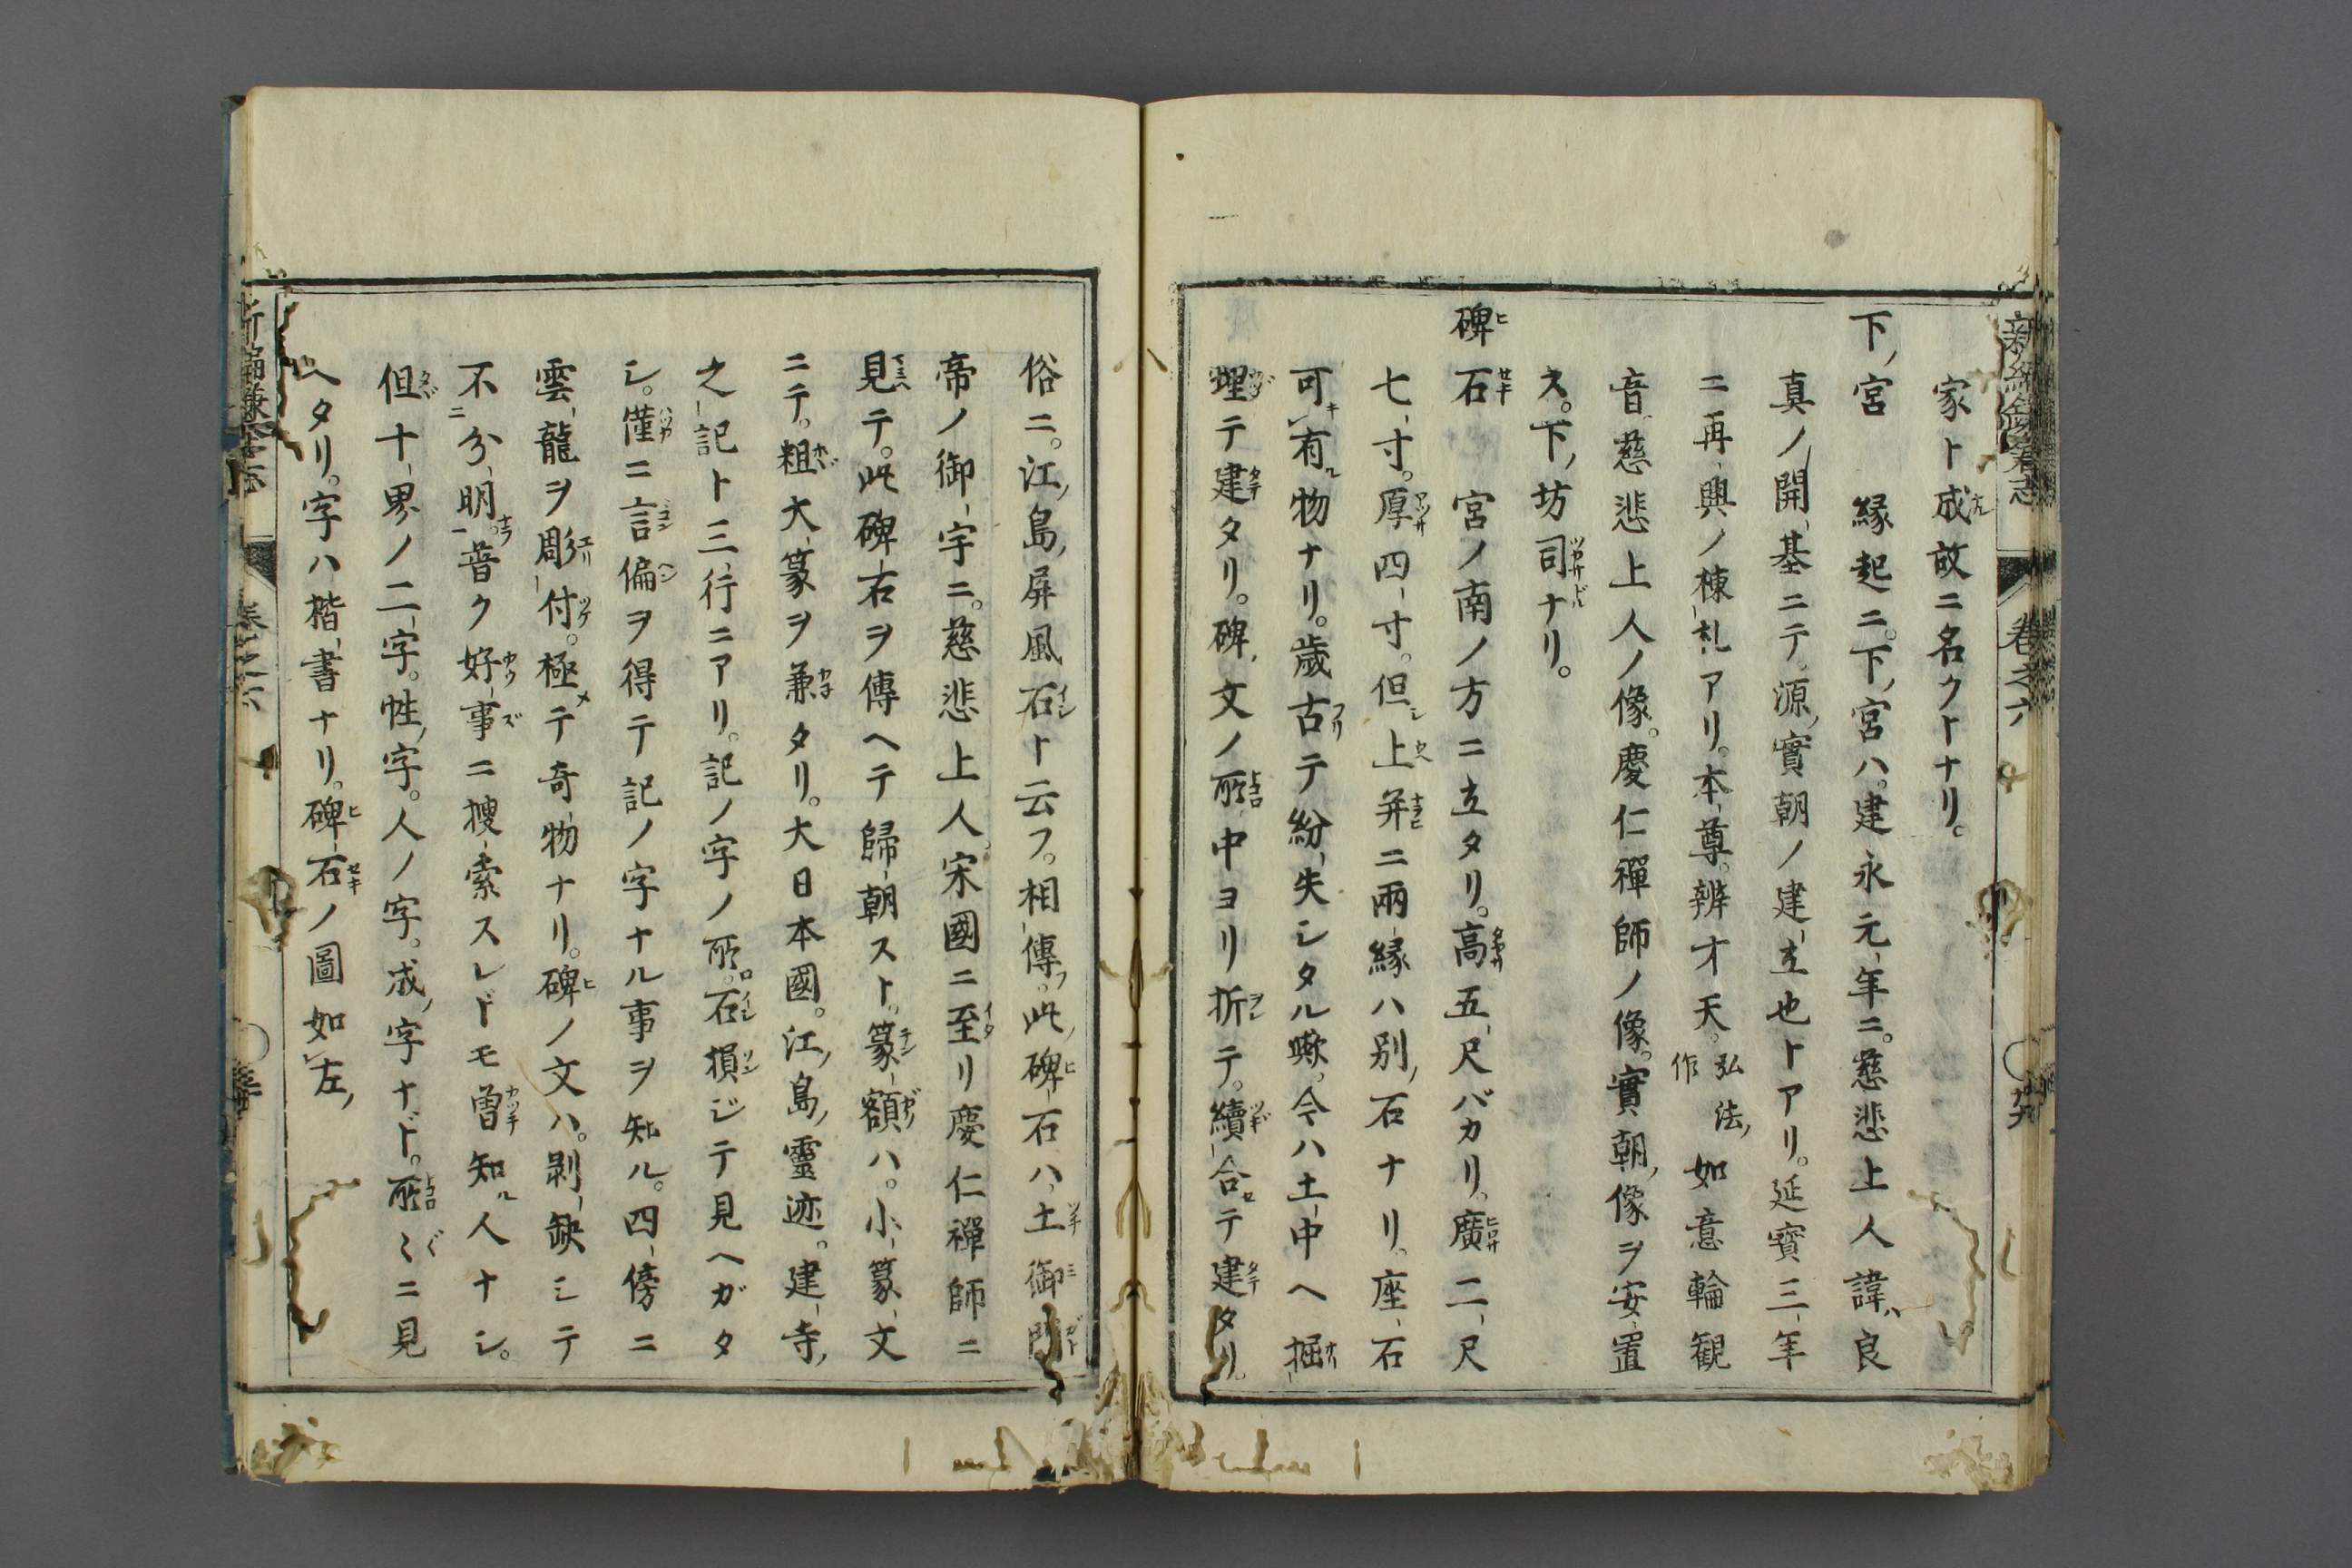 新編鎌倉志 卷之六
家ト成故ニ名クトナリ。
下宮 縁起ニ。下宮ハ。建永元年ニ。慈悲上人諱ハ良
真ノ開基ニテ。源實朝ノ建立也トアリ。延寳三年
ニ再興ノ棟札アリ。本尊。辨才天。弘法作 如意輪觀
音。慈悲上人ノ像。慶仁禪師ノ像。實朝像ヲ安置
ス。下坊司ナリ。
碑石 宮ノ南ノ方ニ立タリ。高五尺バカリ。廣二尺
七寸。厚四寸。但シ上并ニ兩縁ハ別石ナリ。座石
可有物ナリ。歳古テ紛失シタル歟。今ハ土中ヘ掘
埋テ建タリ。碑文ノ所中ヨリ折テ。續合セテ建タリ。
俗ニ。江島屏風石ト云フ。相傳フ。此碑石ハ土御門
帝ノ御宇ニ。慈悲上人宋國ニ至リ慶仁禪師ニ
見テ。此碑石ヲ傳ヘテ歸朝スト。篆額ハ。小篆文
ニテ。粗大篆ヲ兼タリ。大日本國。江島靈迹。建寺
之記ト三行ニアリ。記ノ字ノ所。石損ジテ見ヘガタ
シ。僅ニ言偏ヲ得テ記ノ字ナル事ヲ知ル。四傍ニ
雲龍ヲ彫付。極メテ奇物ナリ。碑ノ文ハ。剥缺シテ
不分明。普ク好事ニ搜索スレドモ曽知ル人ナシ。
但十界ノ二字。性字。人ノ字。成字ナド。所〻ニ見
ヘタリ。字ハ楷書ナリ。碑石ノ圖如左
新編鎌倉志 卷之六